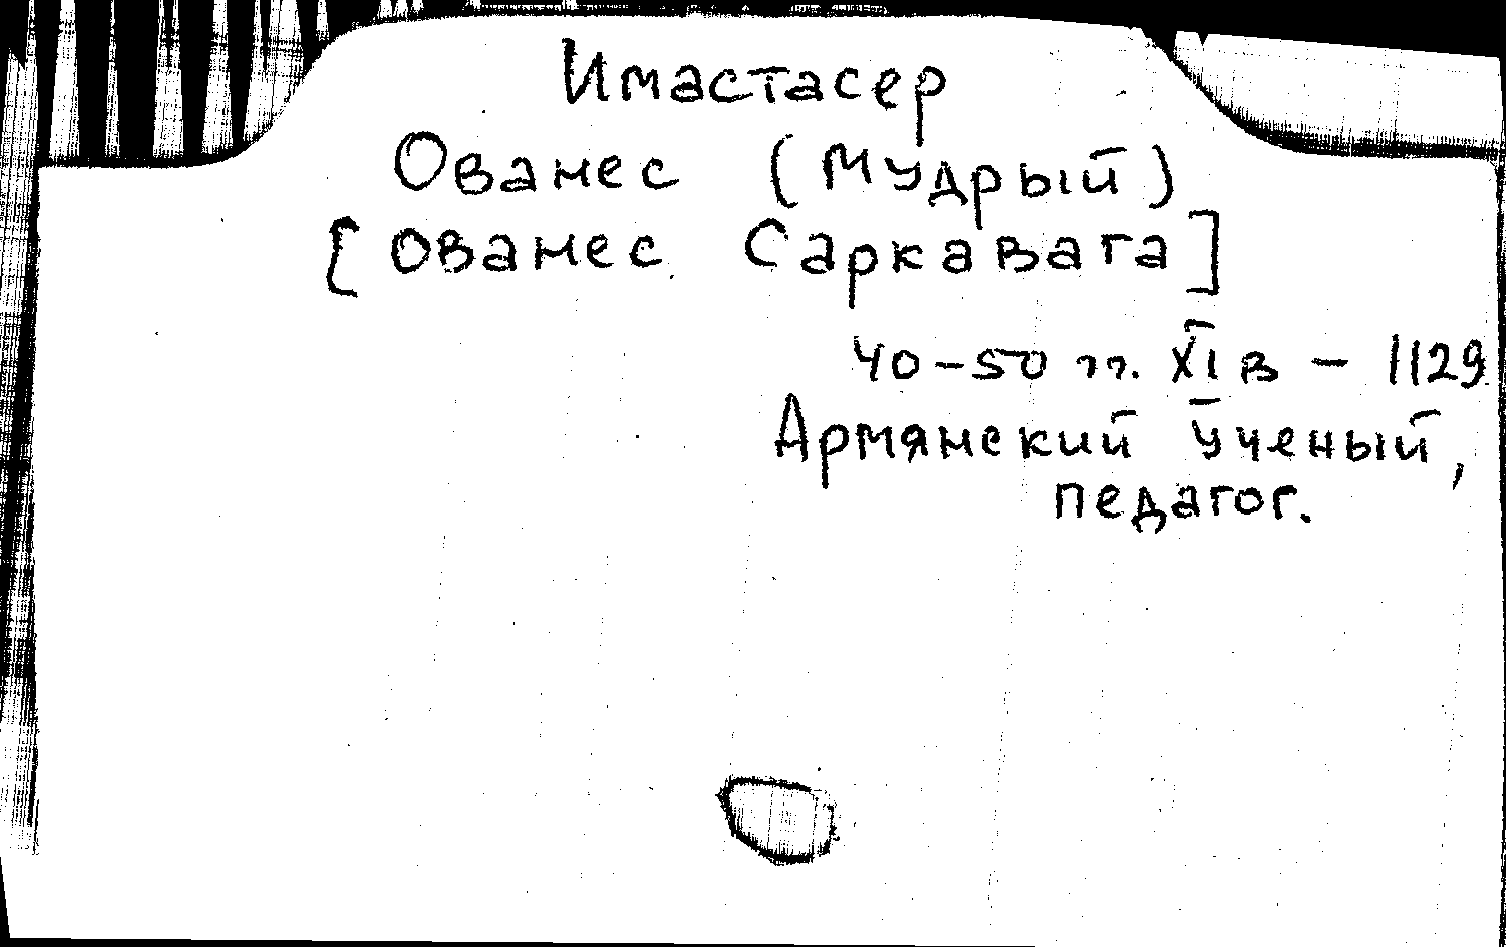 Имастасер
Ованес (Мудрый)
[Ованес Саркавага]
40-50 гг. XI в – 1129
Армянский ученый,
педагог.